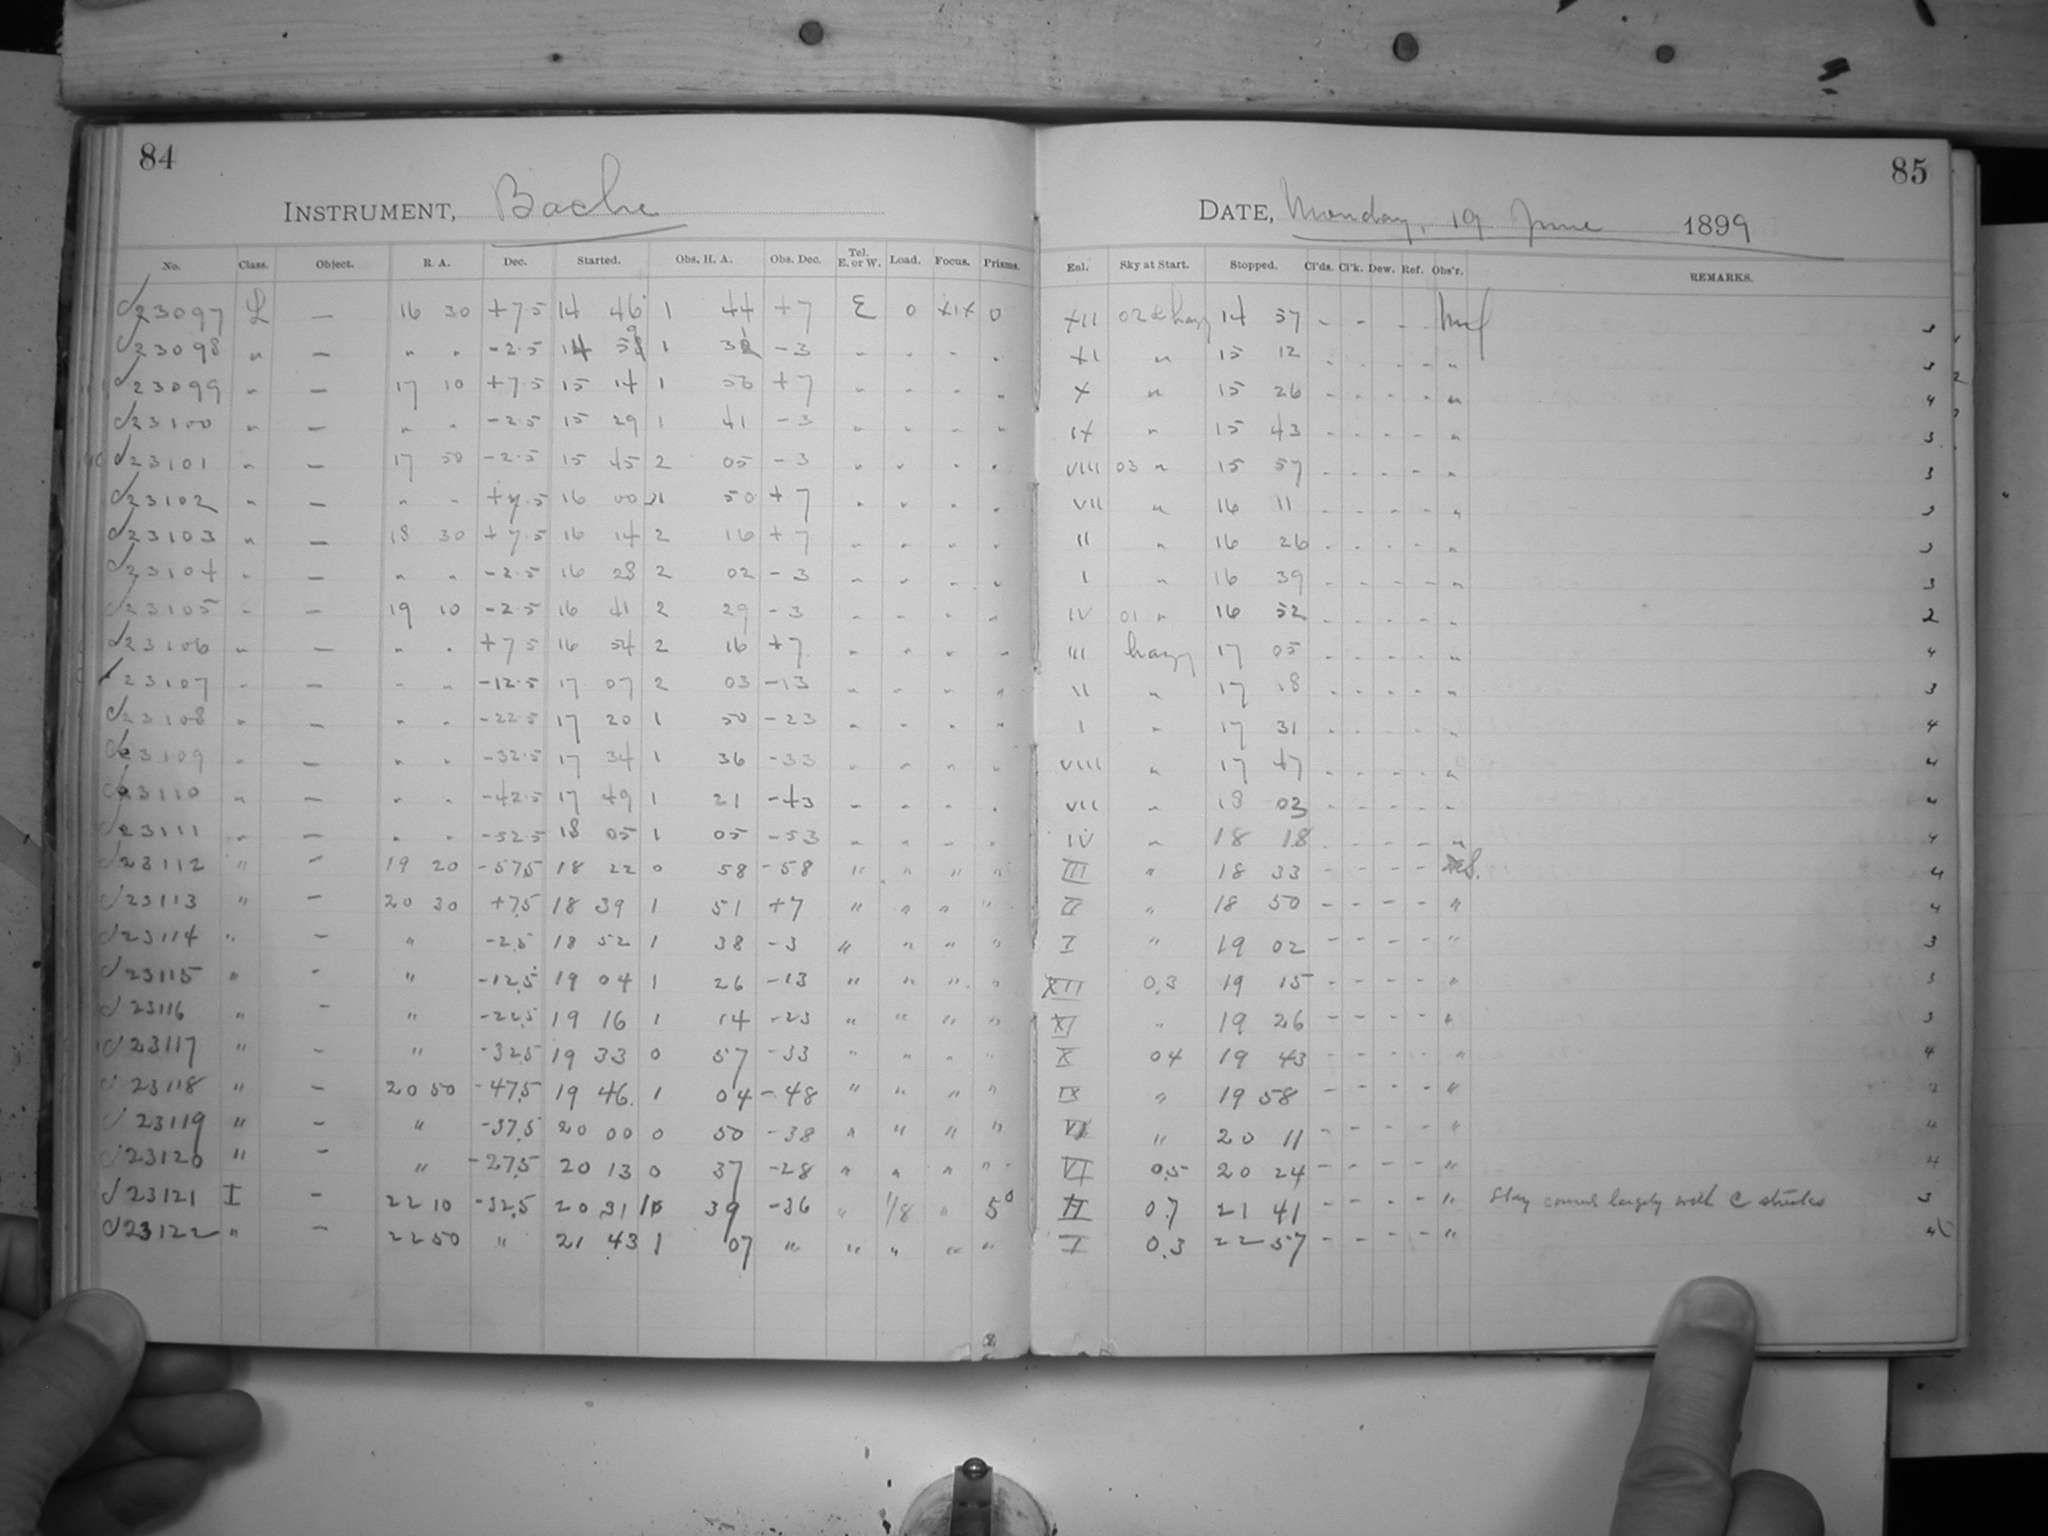 84
INSTRUMENT, Bache
No. Class. Object. R. A. Dec. Started. Obs. H. A. Obs. Dec. Tel. E. or W. Load. Focus. Prisms.
23097 L — 16 30 +7.5 14 46 1 44 +7 E 0 XIX 0
23098 " — " " -2.5 14 59 1 31 -3 " " " "
23099 " — 17 10 +7.5 15 14 1 56 +7 " " " "
23100 " — " " -2.5 15 29 1 41 -3 " " " "
23101 " — 17 50 -2.5 15 45 2 05 -3 " " " "
23102 " — " " +7.5 16 00 1 50 +7 " " " "
23103 " — 18 30 +7.5 16 14 2 16 +7 " " " "
23104 " — " " -2.5 16 28 2 02 -3 " " " "
23105 " — 19 10 -2.5 16 41 2 29 -3 " " " "
23106 " — " " +7.5 16 54 2 16 +7 " " " "
23107 " — " " -12.5 17 07 2 03 -13 " " " "
23108 " — " " -22.5 17 20 1 50 -23 " " " "
23109 " — " " -32.5 17 34 1 36 -33 " " " "
23110 " — " " -42.5 17 49 1 21 -43 " " " "
23111 " — " " -52.5 18 05 1 05 -53 " " " "
23112 " — 19 20 -57.5 18 22 0 58 -58 " " " "
23113 " — 20 30 +7.5 18 39 1 51 +7 " " " "
23114 " — " -2.5 18 52 1 38 -3 " " " "
23115 " — " -12.5 19 04 1 26 -13 " " " "
23116 " — " -22.5 19 16 1 14 -23 " " " "
23117 " — " -32.5 19 33 0 57 -33 " " " "
23118 " — 20 50 -47.5 19 46 1 04 -48 " " " "
23119 " — " -37.5 20 00 0 50 -38 " " " "
23120 " — " -27.5 20 13 0 37 -28 " " " "
23121 I — 22 10 -32.5 20 31 1 39 -36 " 1/8 " 5°
23122 " — 22 50 " 21 43 1 07 " " " " "
85
DATE, Monday, 19 June 1899
Enl. Sky at Start. Stopped. Cl'ds. Cl'k. Dew. Ref. Obs'r. REMARKS.
XII 02 & hazy 14 57 - - - - 3
XI " 15 12 - - - - " 3
X " 15 26 - - - - " 4
IX " 15 43 - - - - " 3
VIII 03 " 15 57 - - - - " 3
VII " 16 11 - - - - " 3
II " 16 26 - - - - " 3
I " 16 39 - - - - " 3
IV 01 " 16 52 - - - - " 2
III hazy 17 05 - - - - " 4
II " 17 18 - - - - " 3
I " 17 31 - - - - " 4
VIII " 17 47 - - - - " 4
VII " 18 03 - - - - " 4
IV " 18 18 - - - - " 4
III " 18 33 - - - - S. 4
II " 18 50 - - - - " 4
I " 19 02 - - - - " 3
XII 0.3 19 15 - - - - " 3
XI " 19 26 - - - - " 3
X 04 19 43 - - - - " 4
IX " 19 58 - - - - " 2
" 20 11 - - - - " 4
VI 0.5 20 24 - - - - " 4
II 0.7 21 41 - - - - " Sky covered largely with C 3
I 0.3 22 57 - - - - " 4